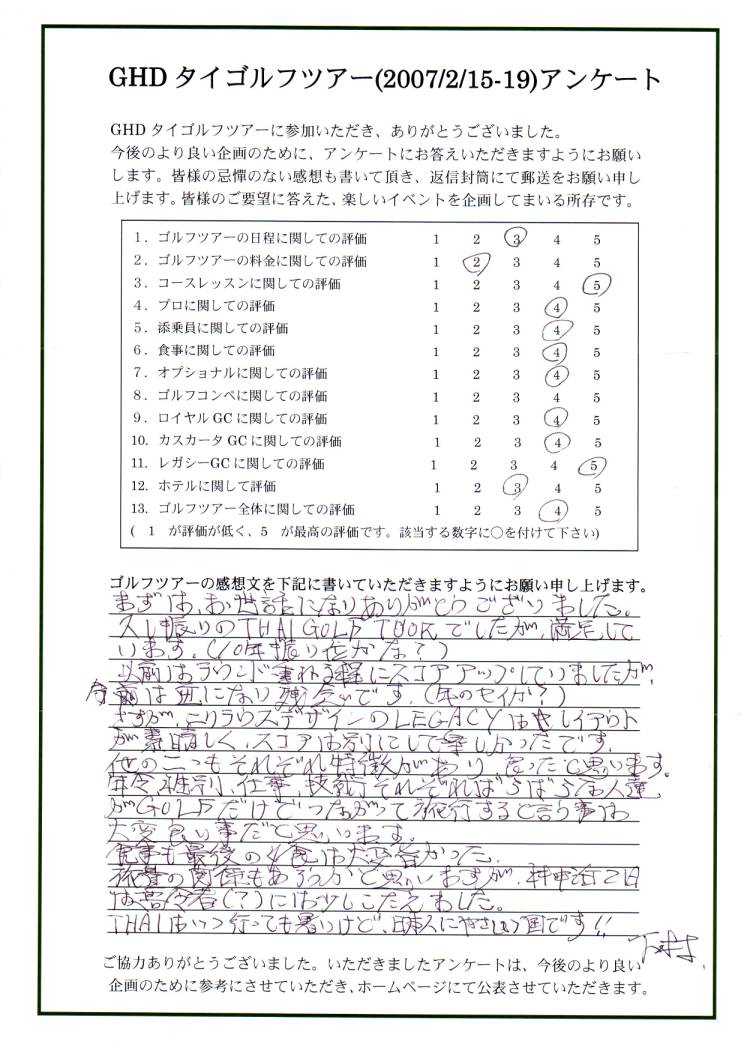 GHD タイゴルフツアー(2007/2/15-19)アンケート
GHD タイゴルフツアーに参加いただき、ありがとうございました。
今後のより良い企画のために、アンケートにお答えいただきますようにお願い
します。皆様の忌憚のない感想も書いて頂き、返信封筒にて郵送をお願い申し
上げます。皆様のご要望に答えた、楽しいイベントを企画してまいる所存です。
1．ゴルフツアーの日程に関しての評価 1 2 3 4 5
2．ゴルフツアーの料金に関しての評価 1 2 3 4 5
3．コースレッスンに関しての評価 1 2 3 4 5
4．プロに関しての評価 1 2 3 4 5
5．添乗員に関しての評価 1 2 3 4 5
6．食事に関しての評価 1 2 3 4 5
7．オプショナルに関しての評価 1 2 3 4 5
8．ゴルフコンペに関しての評価 1 2 3 4 5
9．ロイヤル GC に関しての評価 1 2 3 4 5
10．カスカータ GC に関しての評価 1 2 3 4 5
11．レガシーGC に関しての評価 1 2 3 4 5
12．ホテルに関して評価 1 2 3 4 5
13．ゴルフツアー全体に関しての評価 1 2 3 4 5
( 1 が評価が低く、5 が最高の評価です。該当する数字に○を付けて下さい)
ゴルフツアーの感想文を下記に書いていただきますようにお願い申し上げます。
まずは、お世話になりありがとうございました。
久し振りのTHAI GOLF TOURでしたが、満足して
います。(10年振り位かな？)
以前はラウンド重ねる程にスコアアップしていましたが、
今回は逆になり残念です。(年のセイか？)
さすが、ニクラウスデザインのLEGACYはレイアウト
が素晴しく、スコアは別にして楽しかったです。
他の二つもそれぞれ特徴があり良かったと思います。
年令、性別、仕事、技術それぞればらばらな人達
がGOLFだけどつながって旅行すると言う事は
大変良い事だと思います。
食事も最後の夕食は大変旨かった。
旅費の関係もあろうかと思いますが、機中泊2日
は高令者(？)には少しこたえました。
THAIはいつ行っても暑いけど、日本人にやさしい国です!!
下村
ご協力ありがとうございました。いただきましたアンケートは、今後のより良い
企画のために参考にさせていただき、ホームページにて公表させていただきます。